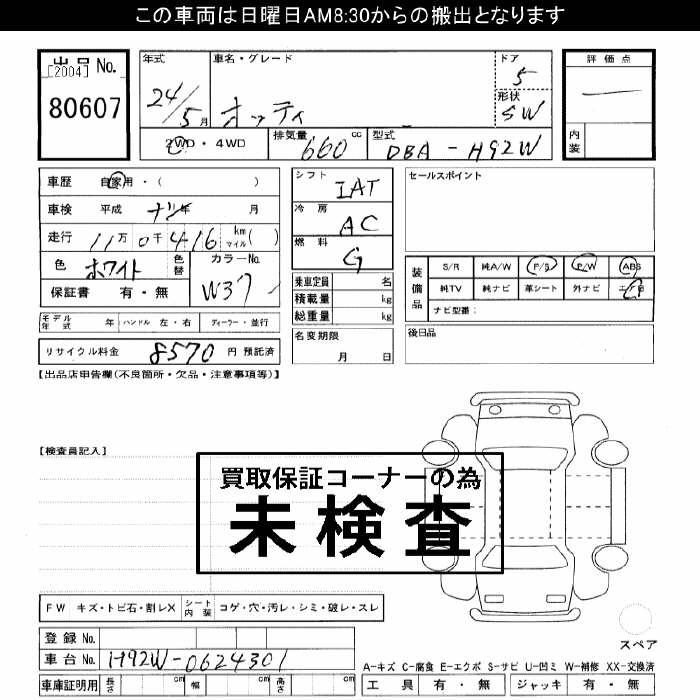 この車両は日曜日AM8:30からの搬出となります
出品No.
[2004]
80607
年式
24/5月
車名・グレード
オッティ
ドア
5
形状
SW
評価点
内装
2WD・4WD
排気量
660 cc
型式
DBA-H92W
車歴 自家用・( )
車検 平成 ナシ年 月
走行 11万0千416 km マイル( )
色 ホワイト
色替
カラーNo.
W37
保証書 有・無
モデル年式 年
ハンドル 左・右
ディーラー・並行
リサイクル料金 8570 円 預託済
シフト
IAT
冷房
AC
燃料
G
乗車定員 名
積載量 kg
総重量 kg
名変期限
月 日
セールスポイント
装備品
S/R 純A/W P/S P/W ABS
純TV 純ナビ 革シート 外ナビ エアB
ナビ型番:
後日品
【出品店申告欄(不良箇所・欠品・注意事項等)】
【検査員記入】
買取保証コーナーの為
未検査
FW キズ・トビ石・割レX
シート内装
コゲ・穴・汚レ・シミ・破レ・スレ
登録No.
車台No. H92W-0624301
車庫証明用 長さ cm 幅 cm 高さ cm
スペア
A-キズ C-腐食 E-エクボ S-サビ U-凹ミ W-補修 XX-交換済
工具 有・無
ジャッキ 有・無